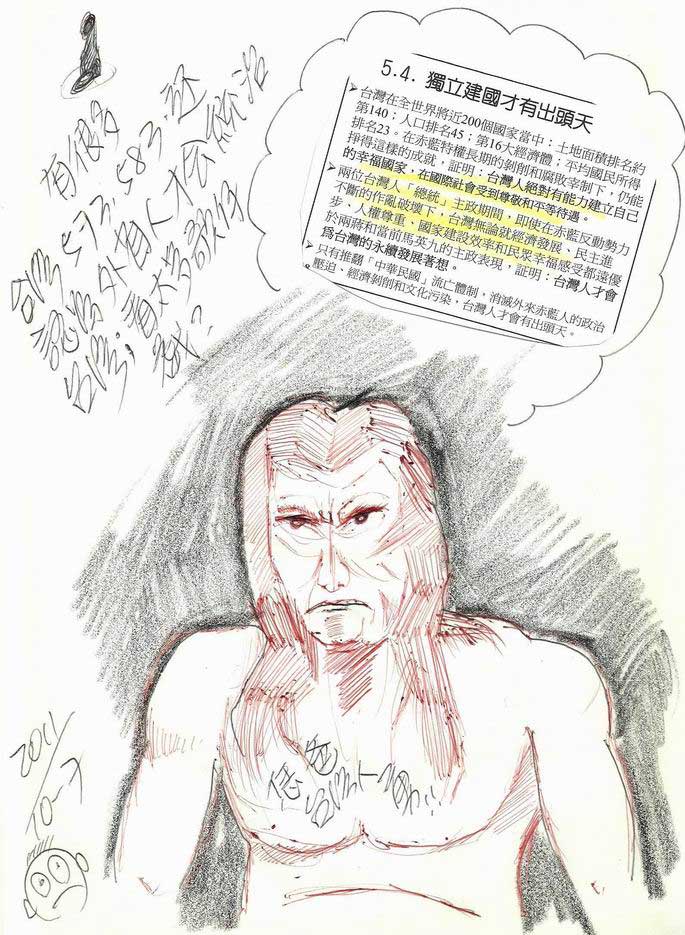 5.4. 獨立建國才有出頭天
➤台灣在全世界將近200個國家當中:土地面積排名約
第140;人口排名45;第16大經濟體;平均國民所得
排名23。在赤藍特權長期的剝削和腐敗宰制下,仍能
掙得這樣的成就,証明:台灣人絕對有能力建立自己
的幸福國家,在國際社會受到尊敬和平等待遇。
➤兩位台灣人「總統」主政期間,即使在赤藍反動勢力
不斷的作亂破壞下,台灣無論就經濟發展、民主進
步、人權尊重、國家建設效率和民眾幸福感受都遠優
於兩蔣和當前馬英九的主政表現,証明:台灣人才會
為台灣的永續發展著想。
➤只有推翻「中華民國」流亡體制,消滅外來赤藍人的政治
壓迫、經濟剝削和文化污染,台灣人才會有出頭天。
有很多
台灣
認為外省人才
台灣
2011/
10-7
爸
台灣